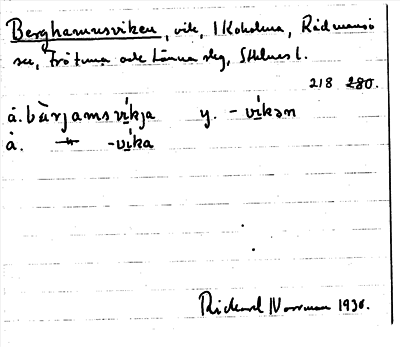 Berghamnsviken, vik, i Koholma, Rådmansö
sn, Frötuna och Länna slg, Sthlms l.
218 280.
å. bàrjamsvíkja y. - víkən
å. -víka
Rickard Norrman 1930.